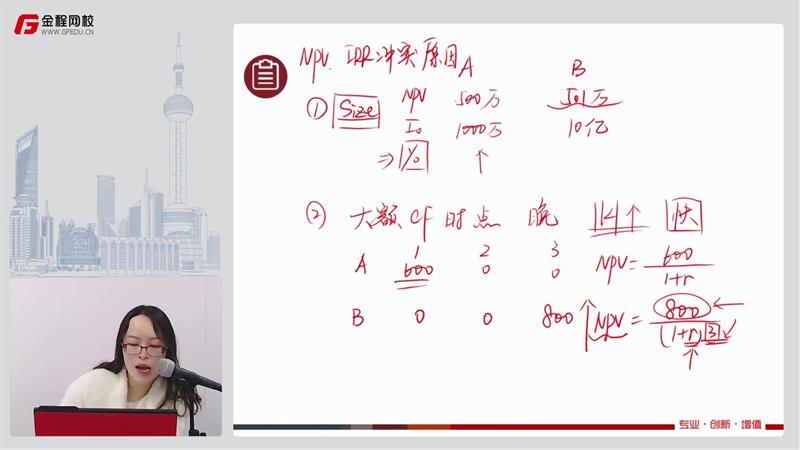 金程网校
WWW.GFEDU.CN
NPV. IRR冲突原因
A B
① Size NPV 500万 501万
I₀ 1000万 10亿
⇒ % ↑
② 大额CF时点 晚 快
1 2 3
A 600 0 0 NPV = 600/(1+r)
B 0 0 800 ↑ NPV = 800/(1+r)³
专业·创新·增值